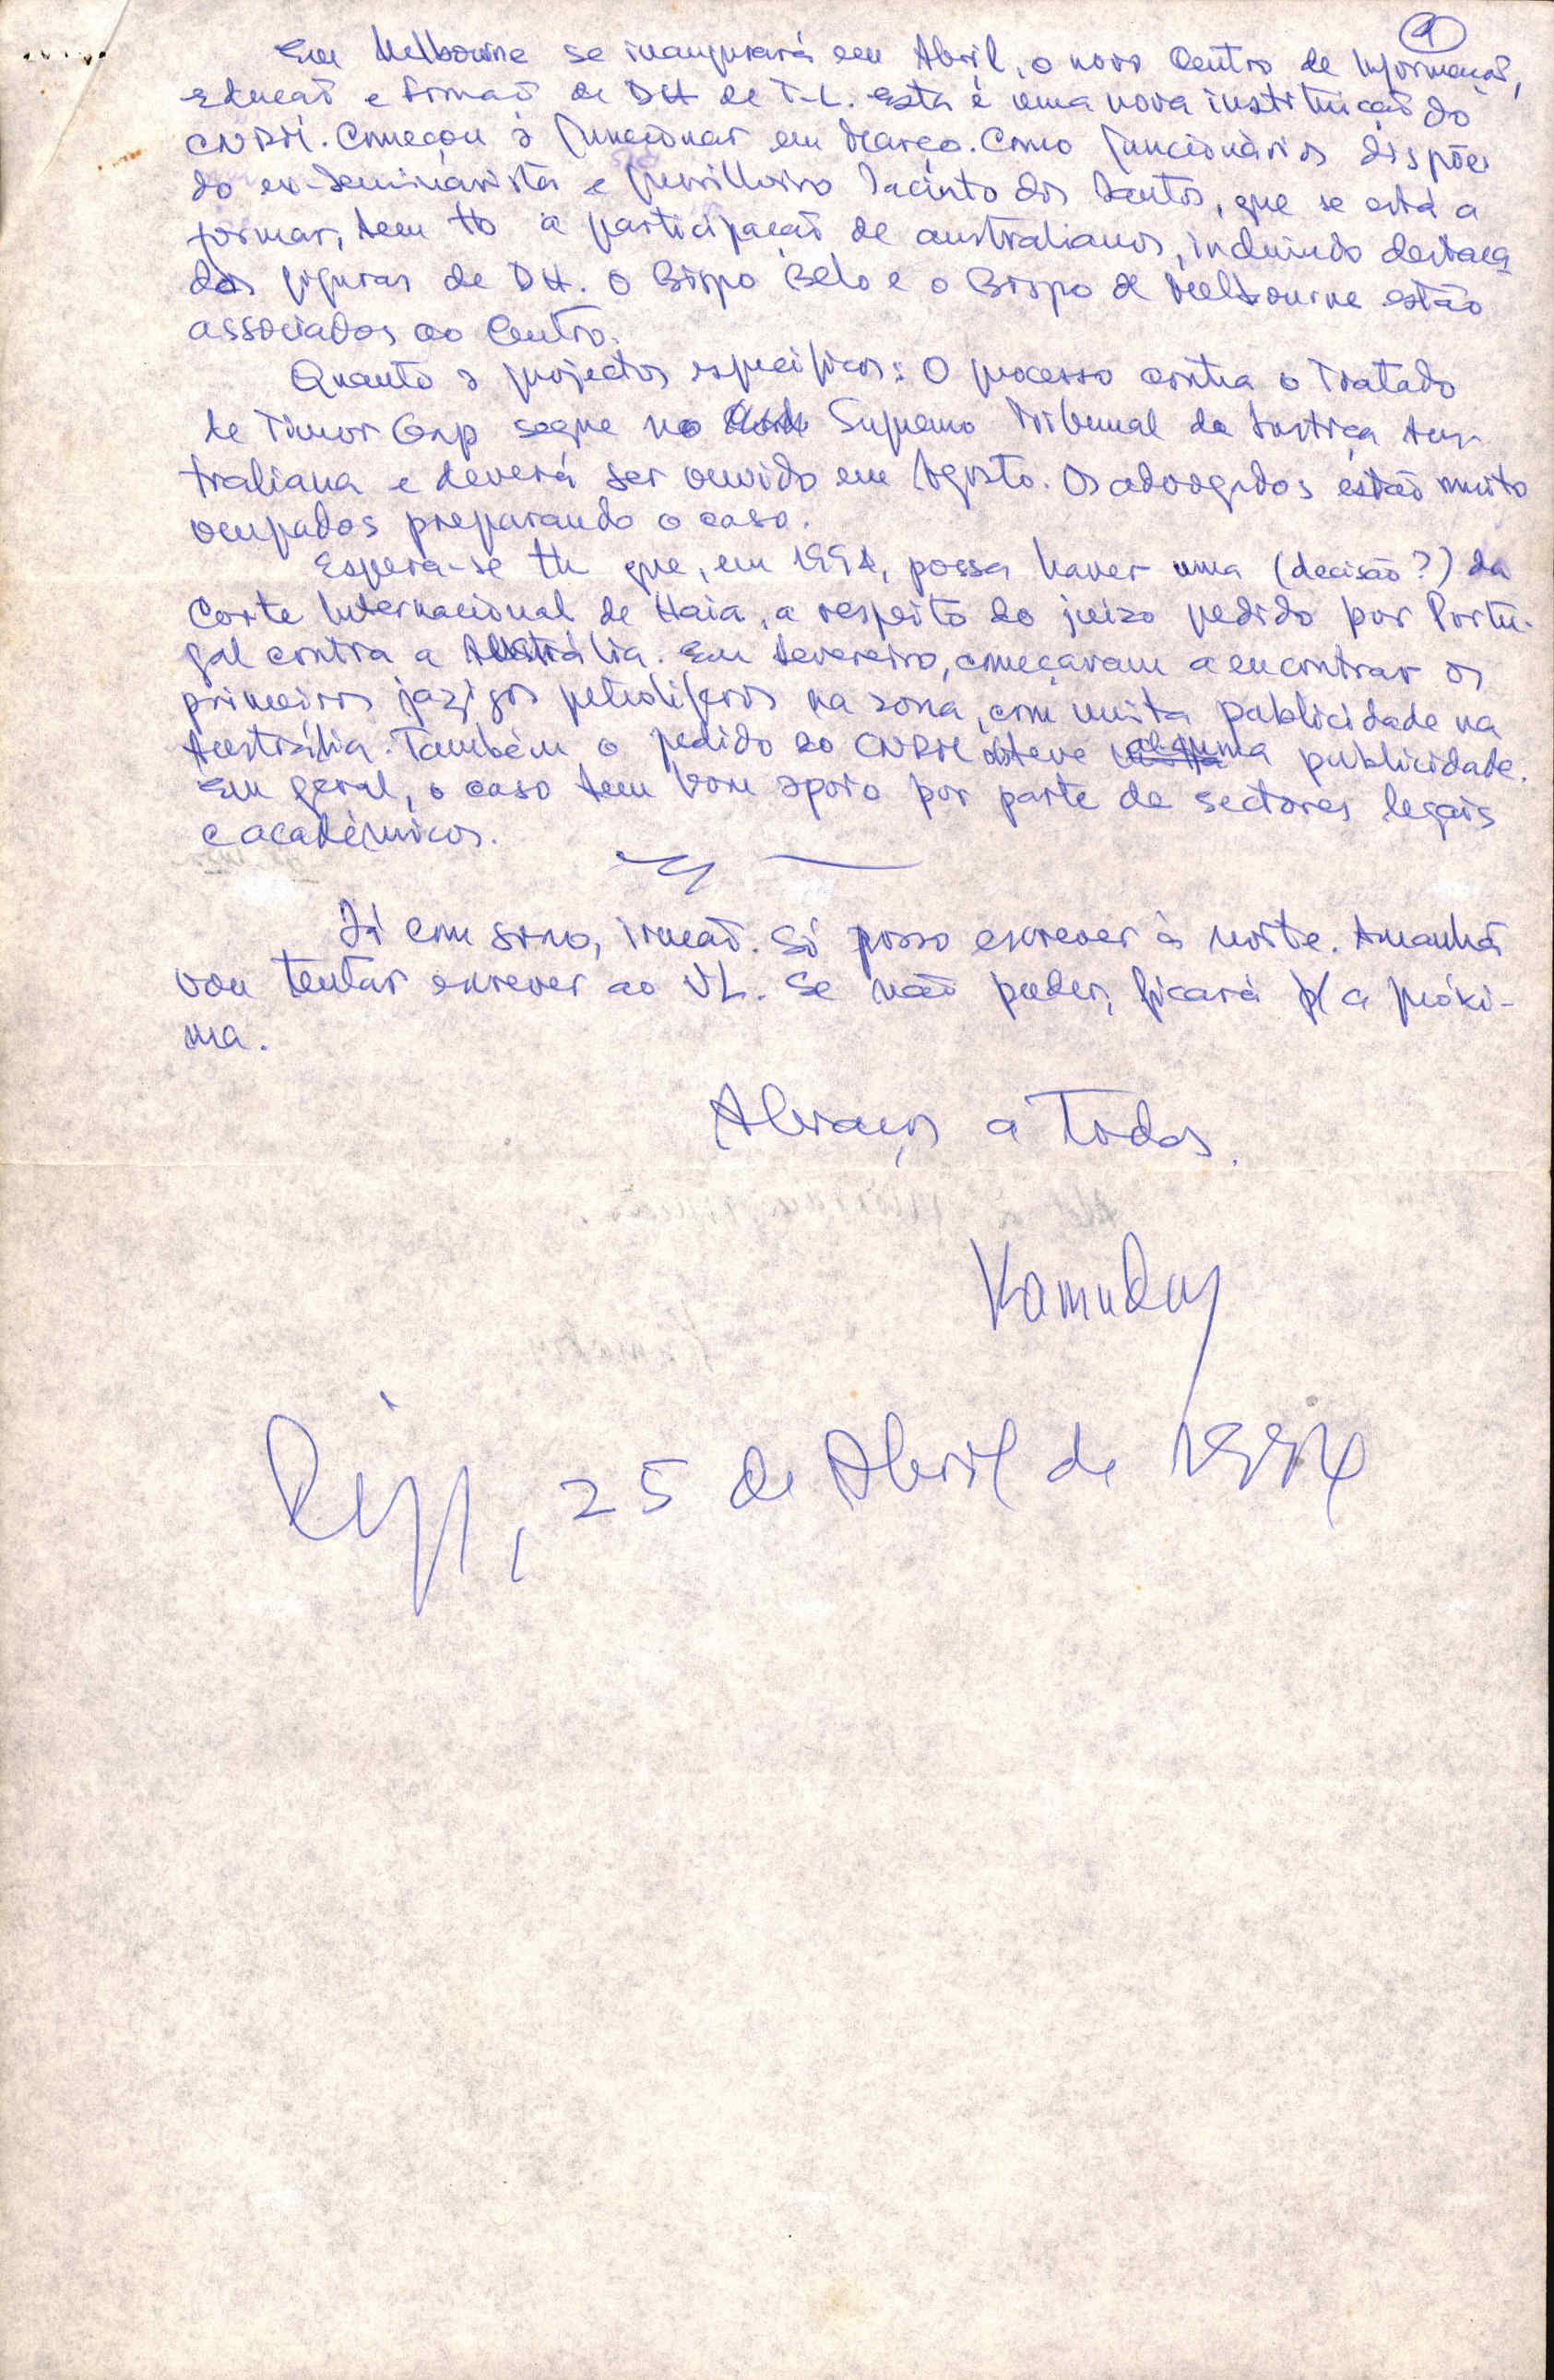 9
Em Melbourne se inaugurará em Abril, o novo Centro de Informaçaõ,
Educaçaõ e Formaçaõ de DH de T-L. Esta é uma nova instituiçaõ do
CNRM. Começou a funcionar em Março. Como funcionários dispõe
do ex-seminarista e guerrilheiro Jacinto dos Santos, que se está a
formar, tem tb a participaçaõ de australianos, incluindo destaca
das figuras de DH. O Bispo Belo e o Bispo de Melbourne estão
associados ao Centro.
Quanto a projectos específicos: O processo contra o Tratado
de Timor Gap segue no Supremo Tribunal de Justiça Aus-
traliana e deverá ser ouvido em Agosto. Os advogados estaõ muito
ocupados preparando o caso.
Espera-se tb que, em 1994, possa haver uma (decisão?) da
Corte Internacional de Haia, a respeito do juízo pedido por Portu-
gal contra a Austrália. Em Fevereiro, começavam a encontrar os
primeiros jazigos petrolíferos na zona, com muita publicidade na
Austrália. Também o pedido do CNRM obteve alguma publicidade.
Em geral, o caso tem bom apoio por parte de sectores legais
e académicos.
Já com sono, irmaõ. Só posso escrever à noite. Amanhã
vou tentar escrever ao VL. Se naõ puder, ficará p/ a próxi-
ma.
Abraços a Todos.
Kamuduy
25 de Abril de 1994